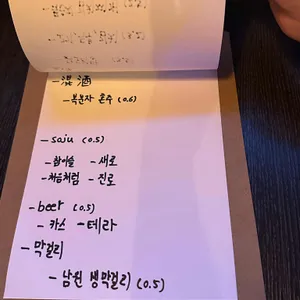 - 混酒
- 복분자 혼주 (0.6)
- soju (0.5)
- 참이슬 - 새로
- 처음처럼 - 진로
- beer (0.5)
- 카스 - 테라
- 막걸리
- 남원 생막걸리 (0.5)